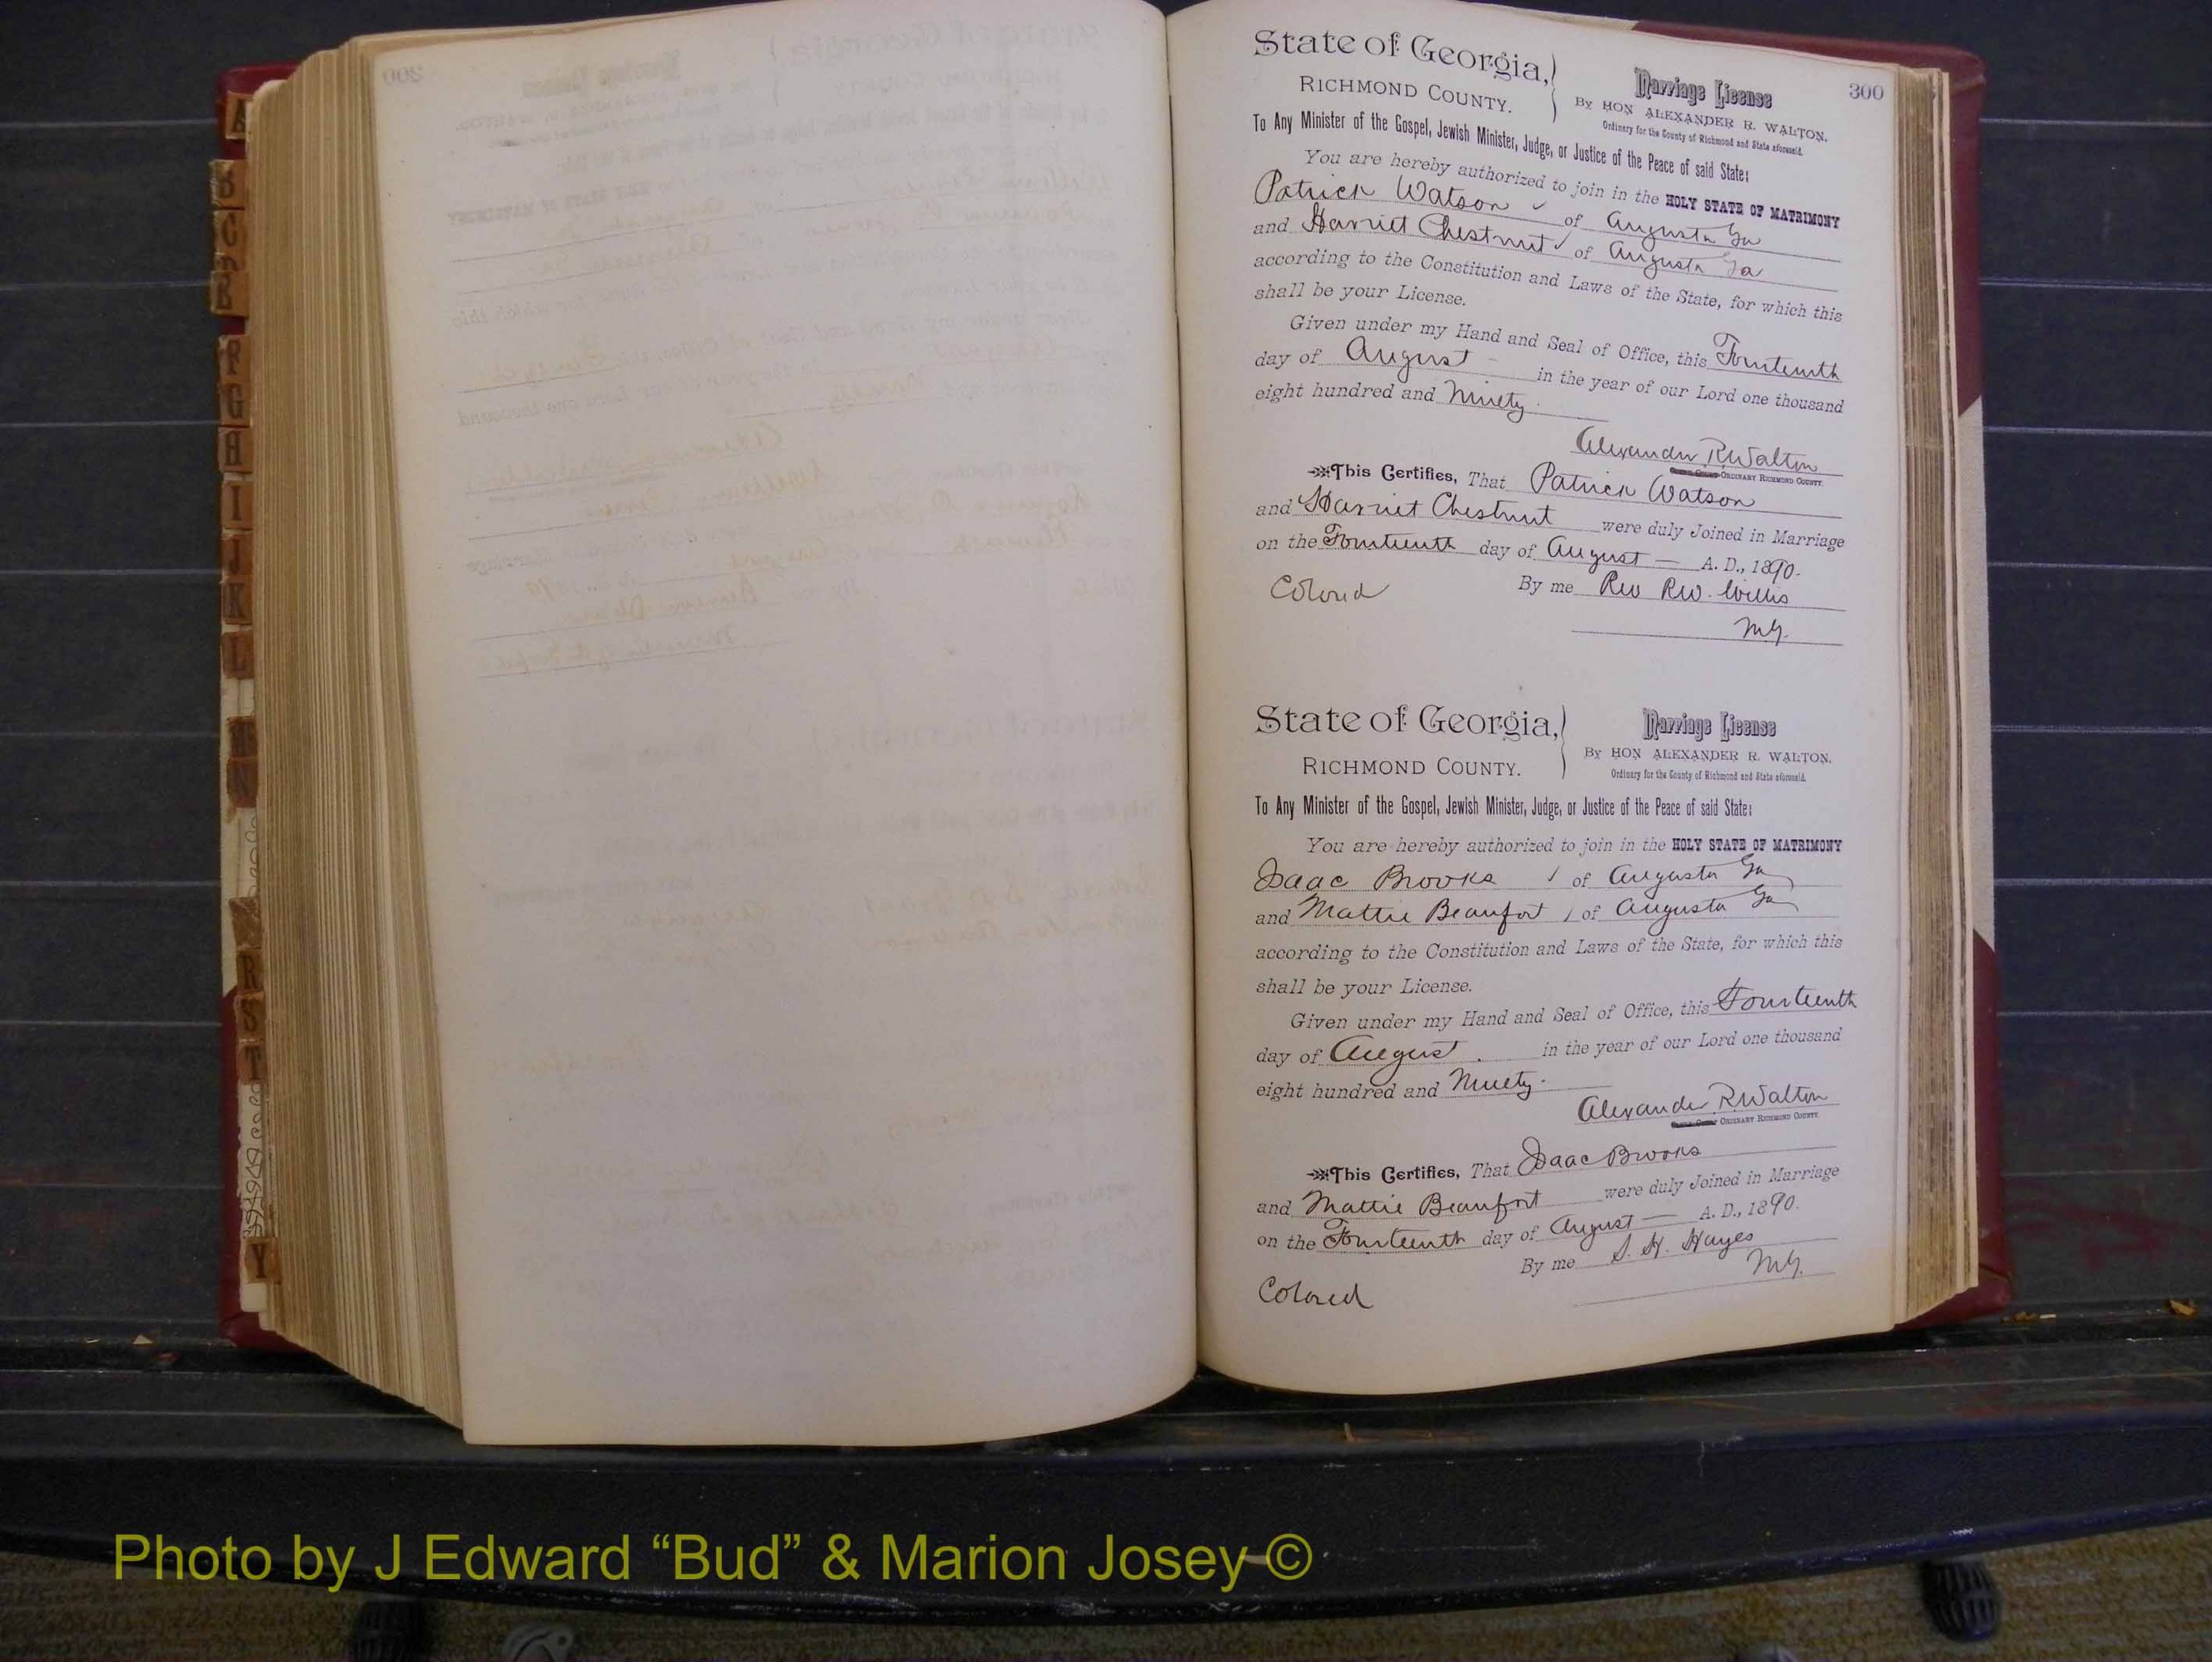 300
State of Georgia,
RICHMOND COUNTY.
Marriage License
By HON ALEXANDER R. WALTON,
Ordinary for the County of Richmond and State aforesaid.
To Any Minister of the Gospel, Jewish Minister, Judge, or Justice of the Peace of said State:
You are hereby authorized to join in the HOLY STATE OF MATRIMONY
Patrick Watson of Augusta Ga
and Harriet Chestnut of Augusta Ga
according to the Constitution and Laws of the State, for which this
shall be your License.
Given under my Hand and Seal of Office, this Fourteenth
day of August in the year of our Lord one thousand
eight hundred and Ninety.
Alexander R Walton
ORDINARY RICHMOND COUNTY.
This Certifies, That Patrick Watson
and Harriet Chestnut were duly Joined in Marriage
on the Fourteenth day of August A. D., 1890.
Colored By me Rev R W. Willis
M G.
State of Georgia,
RICHMOND COUNTY.
Marriage License
By HON ALEXANDER R. WALTON,
Ordinary for the County of Richmond and State aforesaid.
To Any Minister of the Gospel, Jewish Minister, Judge, or Justice of the Peace of said State:
You are hereby authorized to join in the HOLY STATE OF MATRIMONY
Isaac Brooks of Augusta Ga
and Mattie Beaufort of Augusta Ga
according to the Constitution and Laws of the State, for which this
shall be your License.
Given under my Hand and Seal of Office, this Fourteenth
day of August in the year of our Lord one thousand
eight hundred and Ninety.
Alexander R Walton
ORDINARY RICHMOND COUNTY.
This Certifies, That Isaac Brooks
and Mattie Beaufort were duly Joined in Marriage
on the Fourteenth day of August A. D., 1890.
By me S. H. Hayes
M G.
Colored
A
B
C
D
E
F
G
H
I
J
K
L
M
N
R
S
T
Y
Photo by J Edward “Bud” & Marion Josey ©